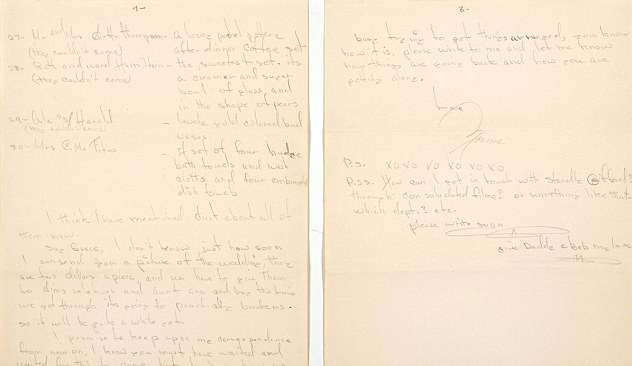 7-
27- Mr and Mrs Orth Thompson- a lovely pastel pottery
(they couldn't come) after dinner coffee set
28- Ruth and ward Hamilton - the sweetest set. its
(they couldn't come) a creamer and sugar
bowl of glass, and
in the shape of pears
29- and Harold - lovely gold colored bud
(they couldn't come) vases
30- Mrs C.M. Titus - A set of four
bath towels and wash
cloths and four embroidered
dish towels
I think I have mentioned just about all of
them now.
Say Grace, I don't know just how soon
I can send you a picture of the wedding, they
are two dollars apiece, and we have to give them
to Jims relatives and aunt ana and buy the house
we got through its going to practically
so it will be quite a while yet.
I promise to keep up my correspondence
from now on, I know you must have waited and
waited for this to come, but
8-
busy trying to get things arranged, you know
how it is. please write to me and let me know
how things are going back and how you are
getting along.
Love
Norma
P.S. XO XO XO XO XO XO XO
P.SS. How can I get in touch with
through consolidated films? or something like that
which dept.? etc.
please write soon
give Daddy a my love